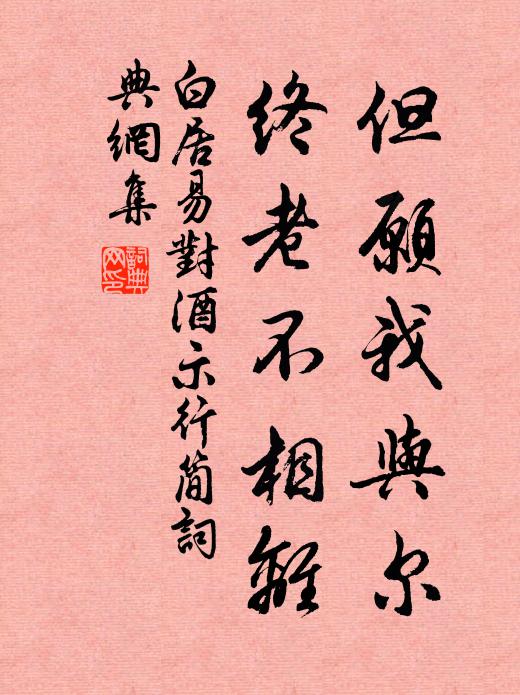 但願我與尔
終老不相離
白居易對酒示行簡詞
典網集
詞典
网印